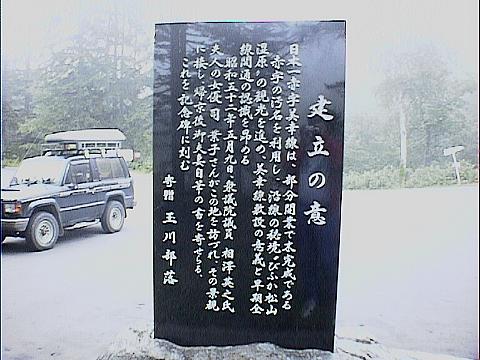 建立の意
日本一赤字美幸線は、部分開業で未完成である
赤字の汚名を利用し、沿線の秘境"びふか松山
湿原"の観光を進め、美幸線敷設の意義と早期全
線開通の認識を昂める
昭和五十二年五月九日、衆議院議員 相澤英之氏
夫人の女優 司 葉子さんがこの地を訪づれ、その景観
に接し、帰京後御夫妻自筆の書を寄せらる、
これを記念碑に刻む
寄贈 玉川部落